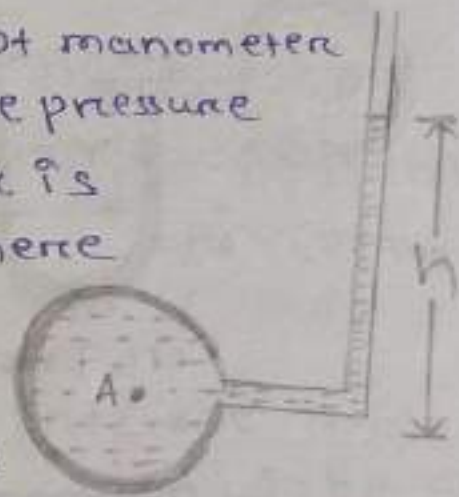 ot manometer
e pressure
is
here
h
A